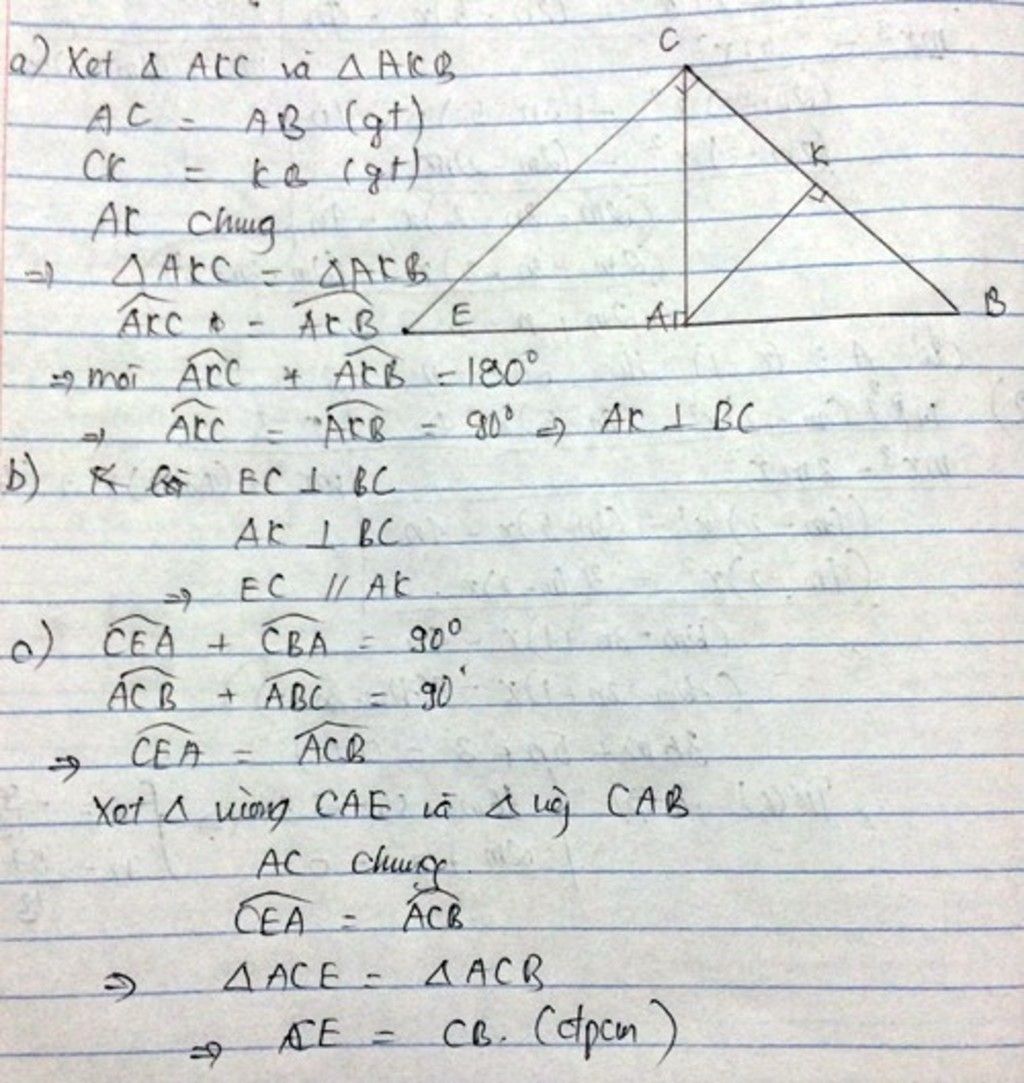 a) Xet Δ AKC và Δ AKB
AC = AB (gt)
CK = KB (gt)
AK chung
=> ΔAKC = ΔAKB
AKC = AKB
=> mài AKC + AKB = 180°
=> AKC = AKB = 90° => AK ⊥ BC
b) EC ⊥ BC
AK ⊥ BC
=> EC // AK
c) CEA + CBA = 90°
ACB + ABC = 90°
=> CEA = ACB
Xet Δ vuông CAE và Δ CAB
AC chung
CEA = ACB
=> ΔACE = ΔACB
=> CE = CB. (đpcm)
C
K
E
A
B